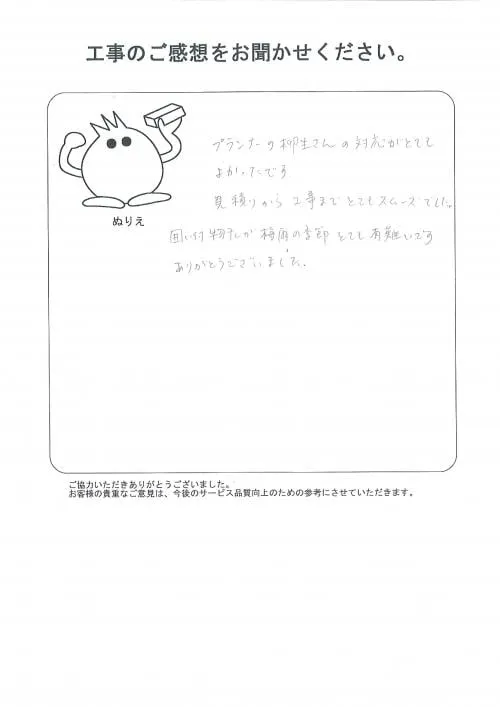 工事のご感想をお聞かせください。
プランナーの柳生さんの対応がとても
よかったです
ぬりえ
見積りから工事までとてもスムーズでした。
囲い付物干しが梅雨の季節とても有難いです
ありがとうございました。
ご協力いただきありがとうございました。
お客様の貴重なご意見は、今後のサービス品質向上のための参考にさせていただきます。